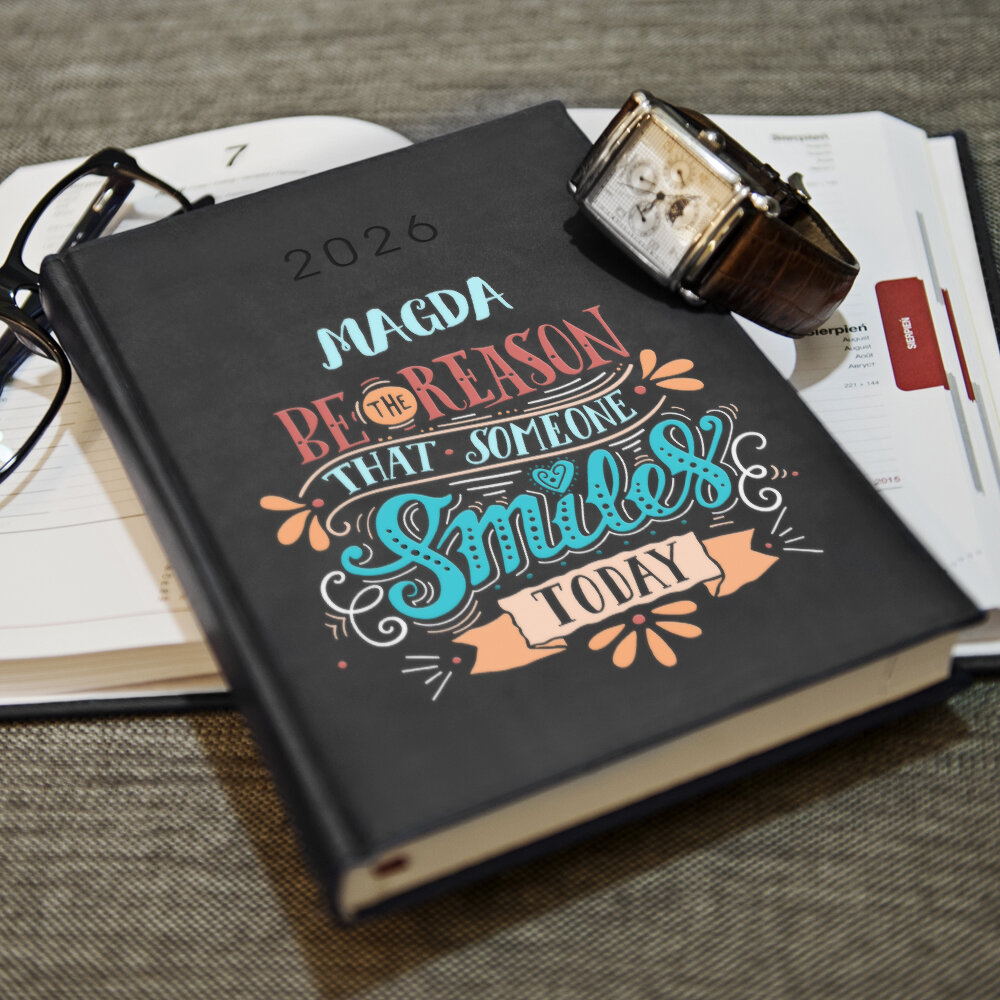 7
2026
MAGDA
BE THE REASON
THAT • SOMEONE
Smiles
TODAY
Sierpień
August
August
Août
Август
221 + 144
SIERPIEŃ
2015